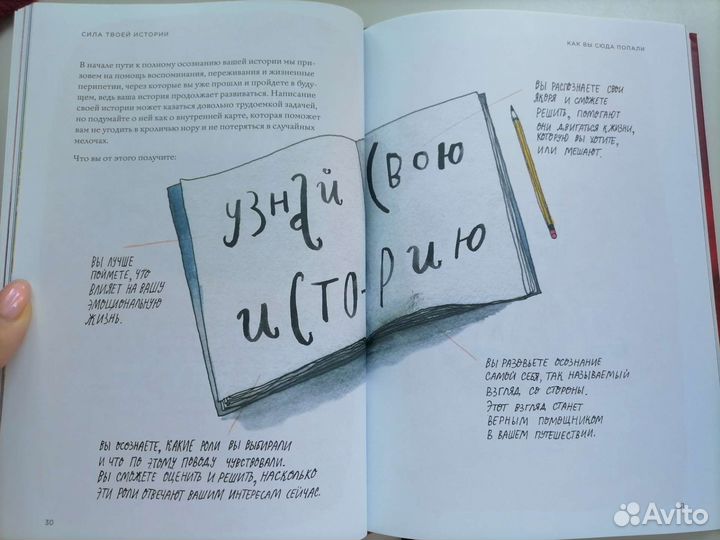 СИЛА ТВОЕЙ ИСТОРИИ
В начале пути к полному осознанию вашей истории мы при-
зовем на помощь воспоминания, переживания и жизненные
перипетии, через которые вы уже прошли и пройдете в буду-
щем, ведь ваша история продолжает развиваться. Написание
своей истории может казаться довольно трудоемкой задачей,
но подумайте о ней как о внутренней карте, которая поможет
вам не угодить в кроличью нору и не потеряться в случайных
мелочах.
Что вы от этого получите:
УЗНАЙ СВОЮ
ИСТО-РИЮ
ВЫ ЛУЧШЕ
ПОЙМЕТЕ, ЧТО
ВЛИЯЕТ НА ВАШУ
ЭМОЦИОНАЛЬНУЮ
ЖИЗНЬ.
ВЫ ОСОЗНАЕТЕ, КАКИЕ РОЛИ ВЫ ВЫБИРАЛИ
И ЧТО ПО ЭТОМУ ПОВОДУ ЧУВСТВОВАЛИ.
ВЫ СМОЖЕТЕ ОЦЕНИТЬ И РЕШИТЬ, НАСКОЛЬКО
ЭТИ РОЛИ ОТВЕЧАЮТ ВАШИМ ИНТЕРЕСАМ СЕЙЧАС.
30
КАК ВЫ СЮДА ПОПАЛИ
ВЫ РАСПОЗНАЕТЕ СВОИ
ЯКОРЯ И СМОЖЕТЕ
РЕШИТЬ, ПОМОГАЮТ
ОНИ ДВИГАТЬСЯ К ЖИЗНИ,
КОТОРУЮ ВЫ ХОТИТЕ,
ИЛИ МЕШАЮТ.
ВЫ РАЗОВЬЕТЕ ОСОЗНАНИЕ
САМОЙ СЕБЯ, ТАК НАЗЫВАЕМЫЙ
ВЗГЛЯД СО СТОРОНЫ.
ЭТОТ ВЗГЛЯД СТАНЕТ
ВЕРНЫМ ПОМОЩНИКОМ
В ВАШЕМ ПУТЕШЕСТВИИ.
Avito